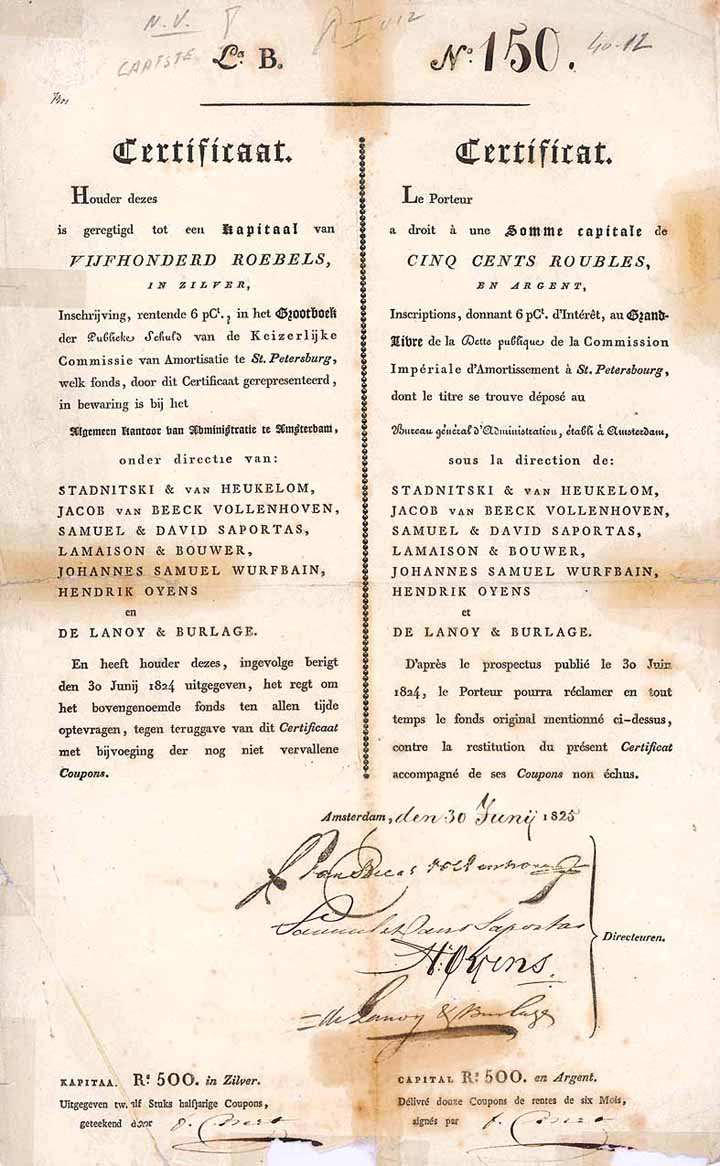 N.V.
CAATSTE
L.a B. N.o 150. 40-12
Certificaat.
Houder dezes
is geregtigd tot een Kapitaal van
VIJFHONDERD ROEBELS,
IN ZILVER,
Inschrijving, rentende 6 pCt., in het Grootboek
der Publieke Schuld van de Keizerlijke
Commissie van Amortisatie te St. Petersburg,
welk fonds, door dit Certificaat gerepresenteerd,
in bewaring is bij het
Algemeen Kantoor van Administratie te Amsterdam,
onder directie van:
STADNITSKI & VAN HEUKELOM,
JACOB VAN BEECK VOLLENHOVEN,
SAMUEL & DAVID SAPORTAS,
LAMAISON & BOUWER,
JOHANNES SAMUEL WURFBAIN,
HENDRIK OYENS
en
DE LANOY & BURLAGE.
En heeft houder dezes, ingevolge berigt
den 30 Junij 1824 uitgegeven, het regt om
het bovengenoemde fonds ten allen tijde
optevragen, tegen teruggave van dit Certificaat
met bijvoeging der nog niet vervallene
Coupons.
Certificat.
Le Porteur
a droit à une Somme capitale de
CINQ CENTS ROUBLES,
EN ARGENT,
Inscriptions, donnant 6 pCt. d'Intérêt, au Grand-
Livre de la Dette publique de la Commission
Impériale d'Amortissement à St. Petersbourg,
dont le titre se trouve déposé au
Bureau général d'Administration, établi à Amsterdam,
sous la direction de:
STADNITSKI & VAN HEUKELOM,
JACOB VAN BEECK VOLLENHOVEN,
SAMUEL & DAVID SAPORTAS,
LAMAISON & BOUWER,
JOHANNES SAMUEL WURFBAIN,
HENDRIK OYENS
et
DE LANOY & BURLAGE.
D'après le prospectus publié le 30 Juin
1824, le Porteur pourra réclamer en tout
temps le fonds original mentionné ci-dessus,
contre la restitution du présent Certificat
accompagné de ses Coupons non échus.
Amsterdam, den 30 Junij 1825
van Beeck Vollenhoven
Samuel et David Saportas
H. Oyens.
de Lanoy & Burlage
Directeuren.
KAPITAA. Rs. 500. in Zilver.
Uitgegeven tw..alf Stuks halfjarige Coupons,
geteekend door
CAPITAL Rs. 500. en Argent.
Délivré douze Coupons de rentes de six Mois,
signés par